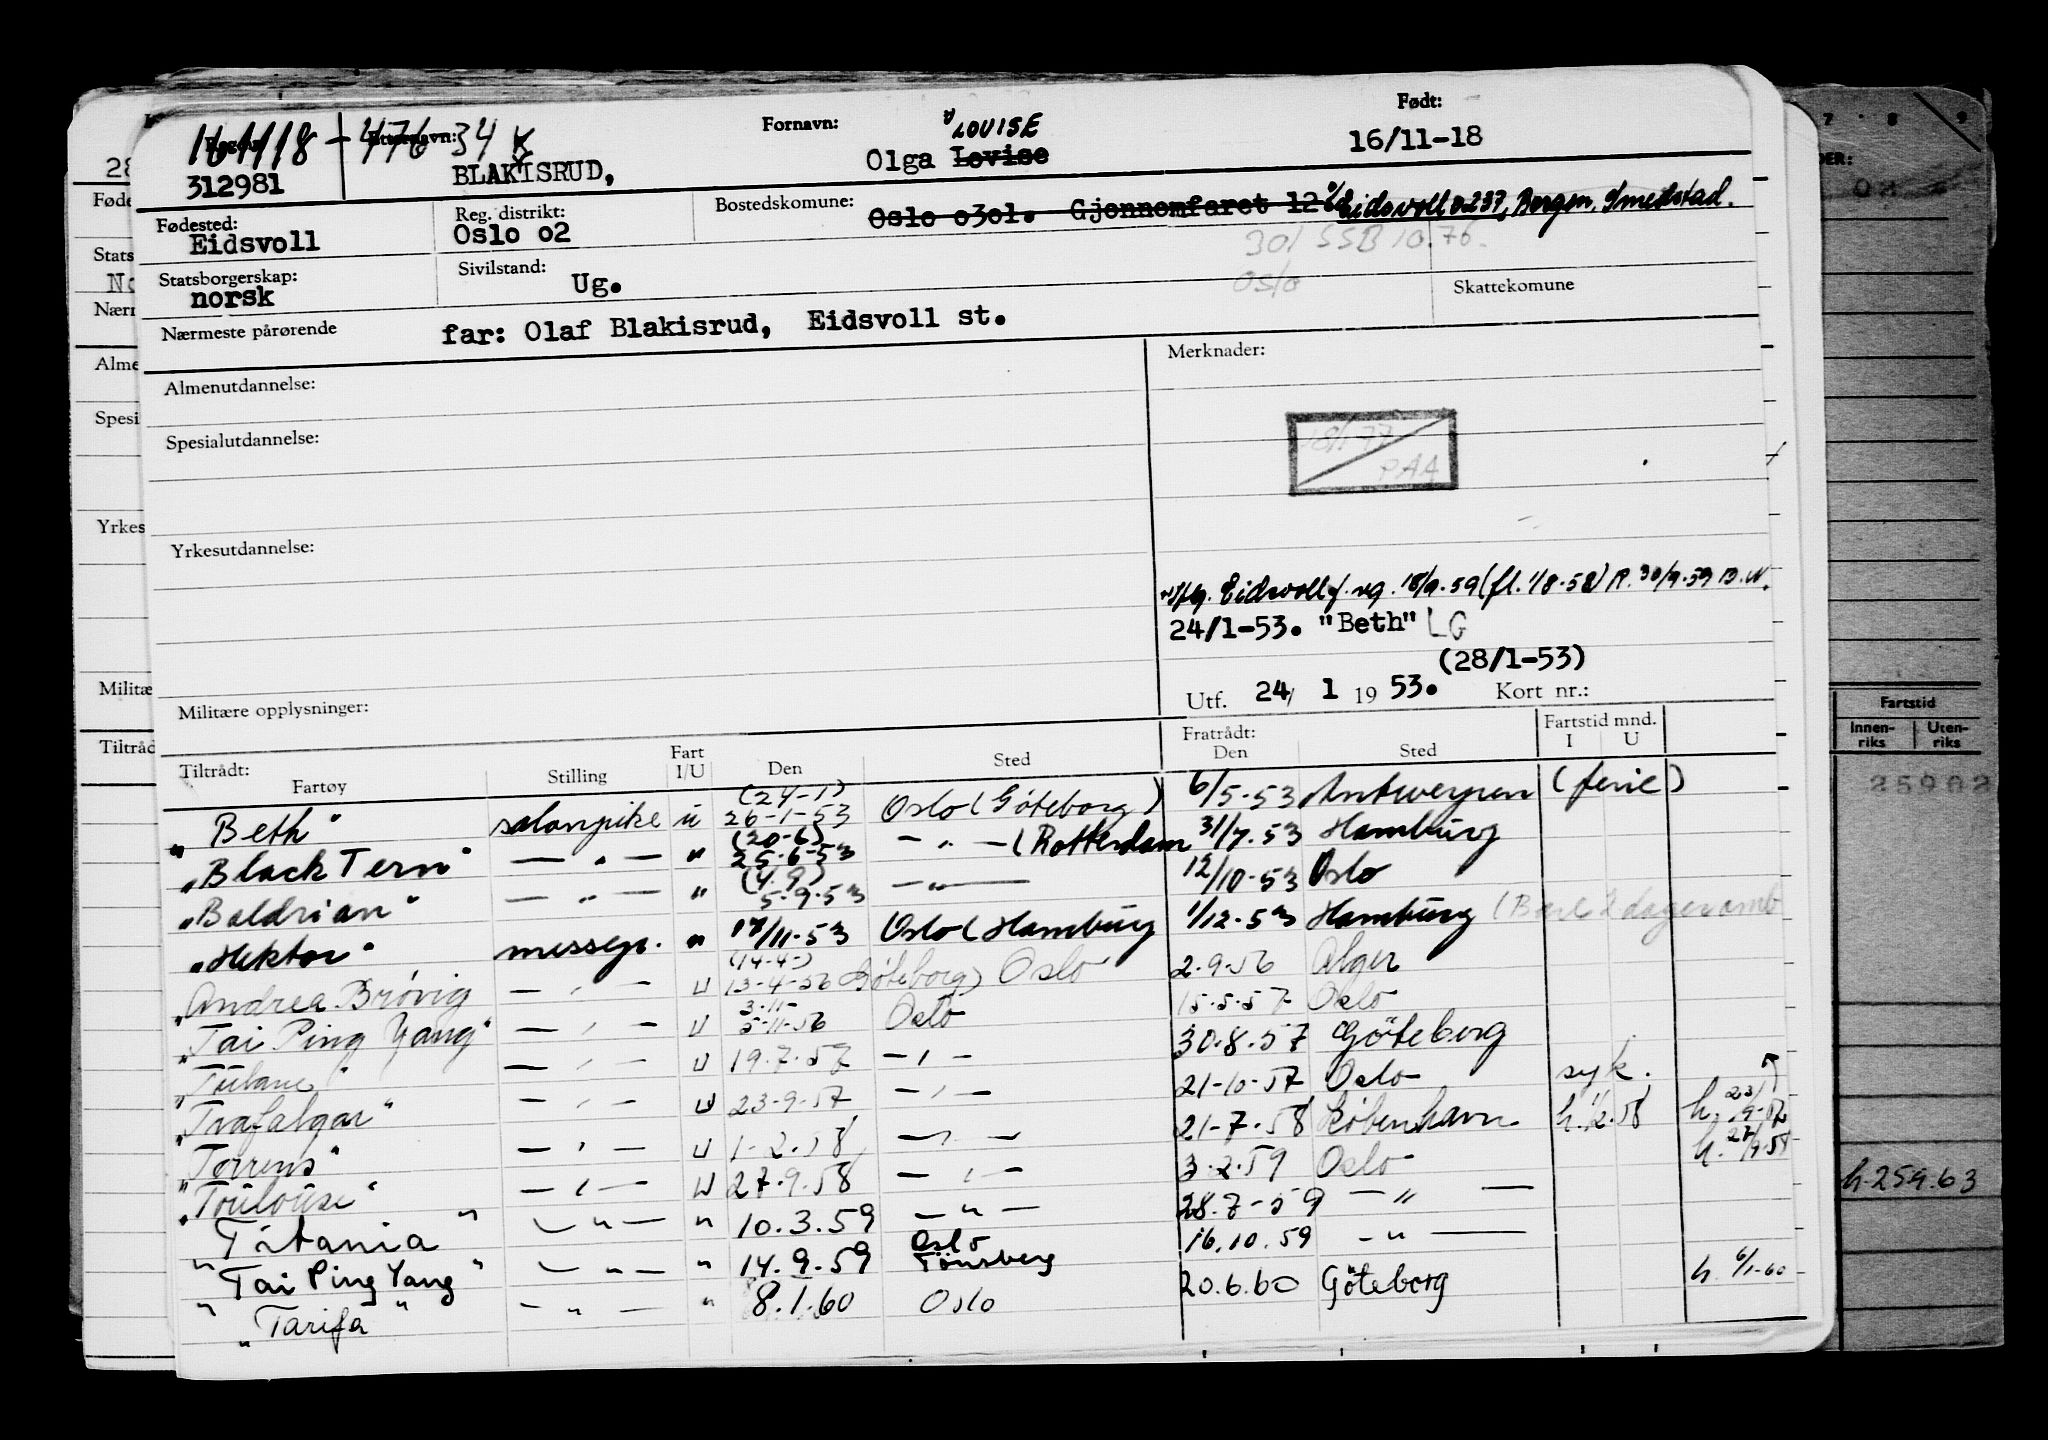 161118 - 476 34 Fornavn: LOUISE Født:
312981 BLAKISRUD, Olga Lovise 16/11-18
Fødested: Eidsvoll Reg. distrikt: Oslo o2 Bostedskomune: Oslo o3o1. Gjennomfaret 12 Eidsvoll 0237, Bergen, Smedstad.
301 SSB 10.76.
Oslo
Statsborgerskap: norsk Sivilstand: Ug. Skattekomune
Nærmeste pårørende far: Olaf Blakisrud, Eidsvoll st.
Almenutdannelse: Merknader:
Spesialutdannelse: 18/1-77 PAA
Yrkesutdannelse:
Eidsvoll f. vg. 18/9.59 (fl. 1/8-58) R. 30/9-59 B.N.
24/1-53. "Beth" LG
(28/1-53)
Militære opplysninger: Utf. 24/ 1 1953. Kort nr.:
Tiltrådt: Fartøy Stilling Fart I/U Den Sted Fratrådt: Den Sted Fartstid mnd. I U
"Beth" salonpike u (24-1) 26-1-53 Oslo (Göteborg) 6/5-53 Antwerpen (ferie)
"Black Tern" — " — " (20-6) 25-6-53 — " — (Rotterdam 31/7.53 Hamburg
"Baldrian" — " — " (4.9) 5-9-53 — " — 12/10-53 Oslo
"Hektor" messep. " 18/11-53 Oslo (Hamburg 1/12-53 Hamburg dager omb
"Andrea Brøvig — " — U (14-4-) 13-4-56 Göteborg) Oslo 2-9-56 Alger
"Tai Ping Yang" — " — U 3-11- 5-11-56 Oslo 15-5-57 Oslo
"Tulane" — " — U 19-7-57 — " — 30.8.57 Göteborg
"Trafalgar" — " — U 23-9-57 — " — 21-10-57 Oslo syk.
"Torrens" — " — U 1-2-58 — " — 21-7-58 København h. 1/2.58 h. 23/9-57
"Toulouse" — " — U 27-9-58 — " — 3-2-59 Oslo h. 27/9-58
"Titania" — " — " 10.3.59 — " — 28.7-59 — " —
"Tai Ping Yang" — " — " 14.9.59 Oslo Tønsberg 16.10.59 — " —
"Tarifa" — " — " 8.1.60 Oslo 20.6.60 Göteborg h. 6/1-60
28
Føde
Stats
No
Nærr
Alme
Spesi
Yrkes
Militæ
Tiltråd
7 8 9
DER:
Fartstid
Innen-riks Uten-riks
25902
h 259.63